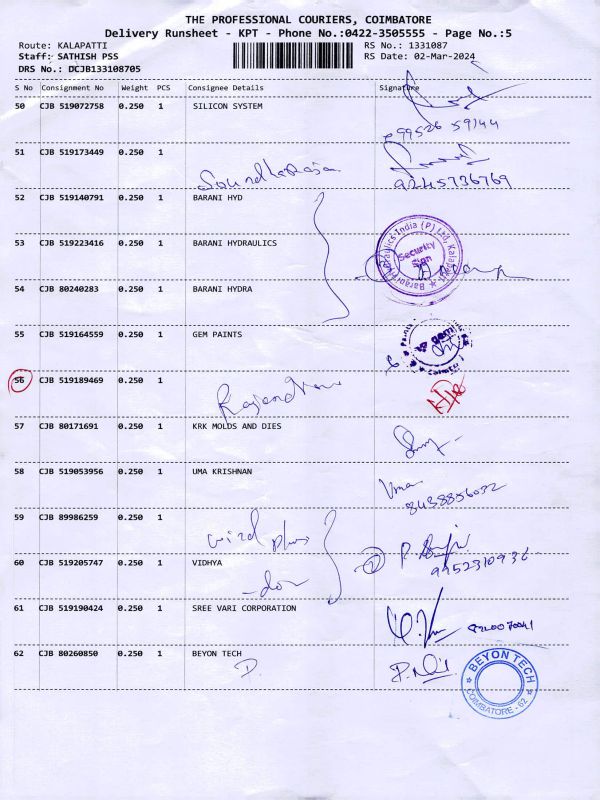 THE PROFESSIONAL COURIERS, COIMBATORE
Delivery Runsheet - KPT - Phone No.:0422-3505555 - Page No.:5
Route: KALAPATTI
RS No.: 1331087
Staff: SATHISH PSS
RS Date: 02-Mar-2024
DRS No.: DCJB133108705
S No Consignment No Weight PCS Consignee Details Signature
50 CJB 519072758 0.250 1 SILICON SYSTEM
99526 59144
51 CJB 519173449 0.250 1
Soundhararajan
9245736769
52 CJB 519140791 0.250 1 BARANI HYD
53 CJB 519223416 0.250 1 BARANI HYDRAULICS
Barani Hydraulics India (P) Ltd,
Security
Sign
54 CJB 80240283 0.250 1 BARANI HYDRA
55 CJB 519164559 0.250 1 GEM PAINTS
gem
56 CJB 519189469 0.250 1
Rajendran
57 CJB 80171691 0.250 1 KRK MOLDS AND DIES
58 CJB 519053956 0.250 1 UMA KRISHNAN
Uma
8438856032
59 CJB 89986259 0.250 1
60 CJB 519205747 0.250 1 VIDHYA
-do-
②
9952310936
61 CJB 519190424 0.250 1 SREE VARI CORPORATION
62 CJB 80260850 0.250 1 BEYON TECH
D.
BEYON TECH
COIMBATORE - 62